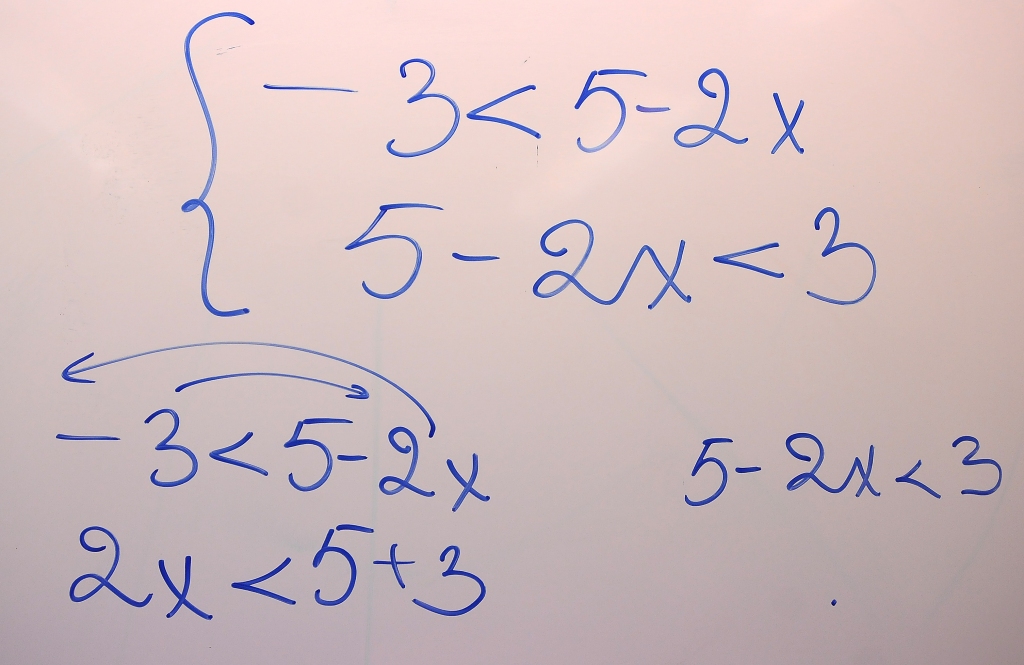 - 3 < 5 - 2x
5 - 2x < 3
- 3 < 5 - 2x
2x < 5 + 3
5 - 2x < 3